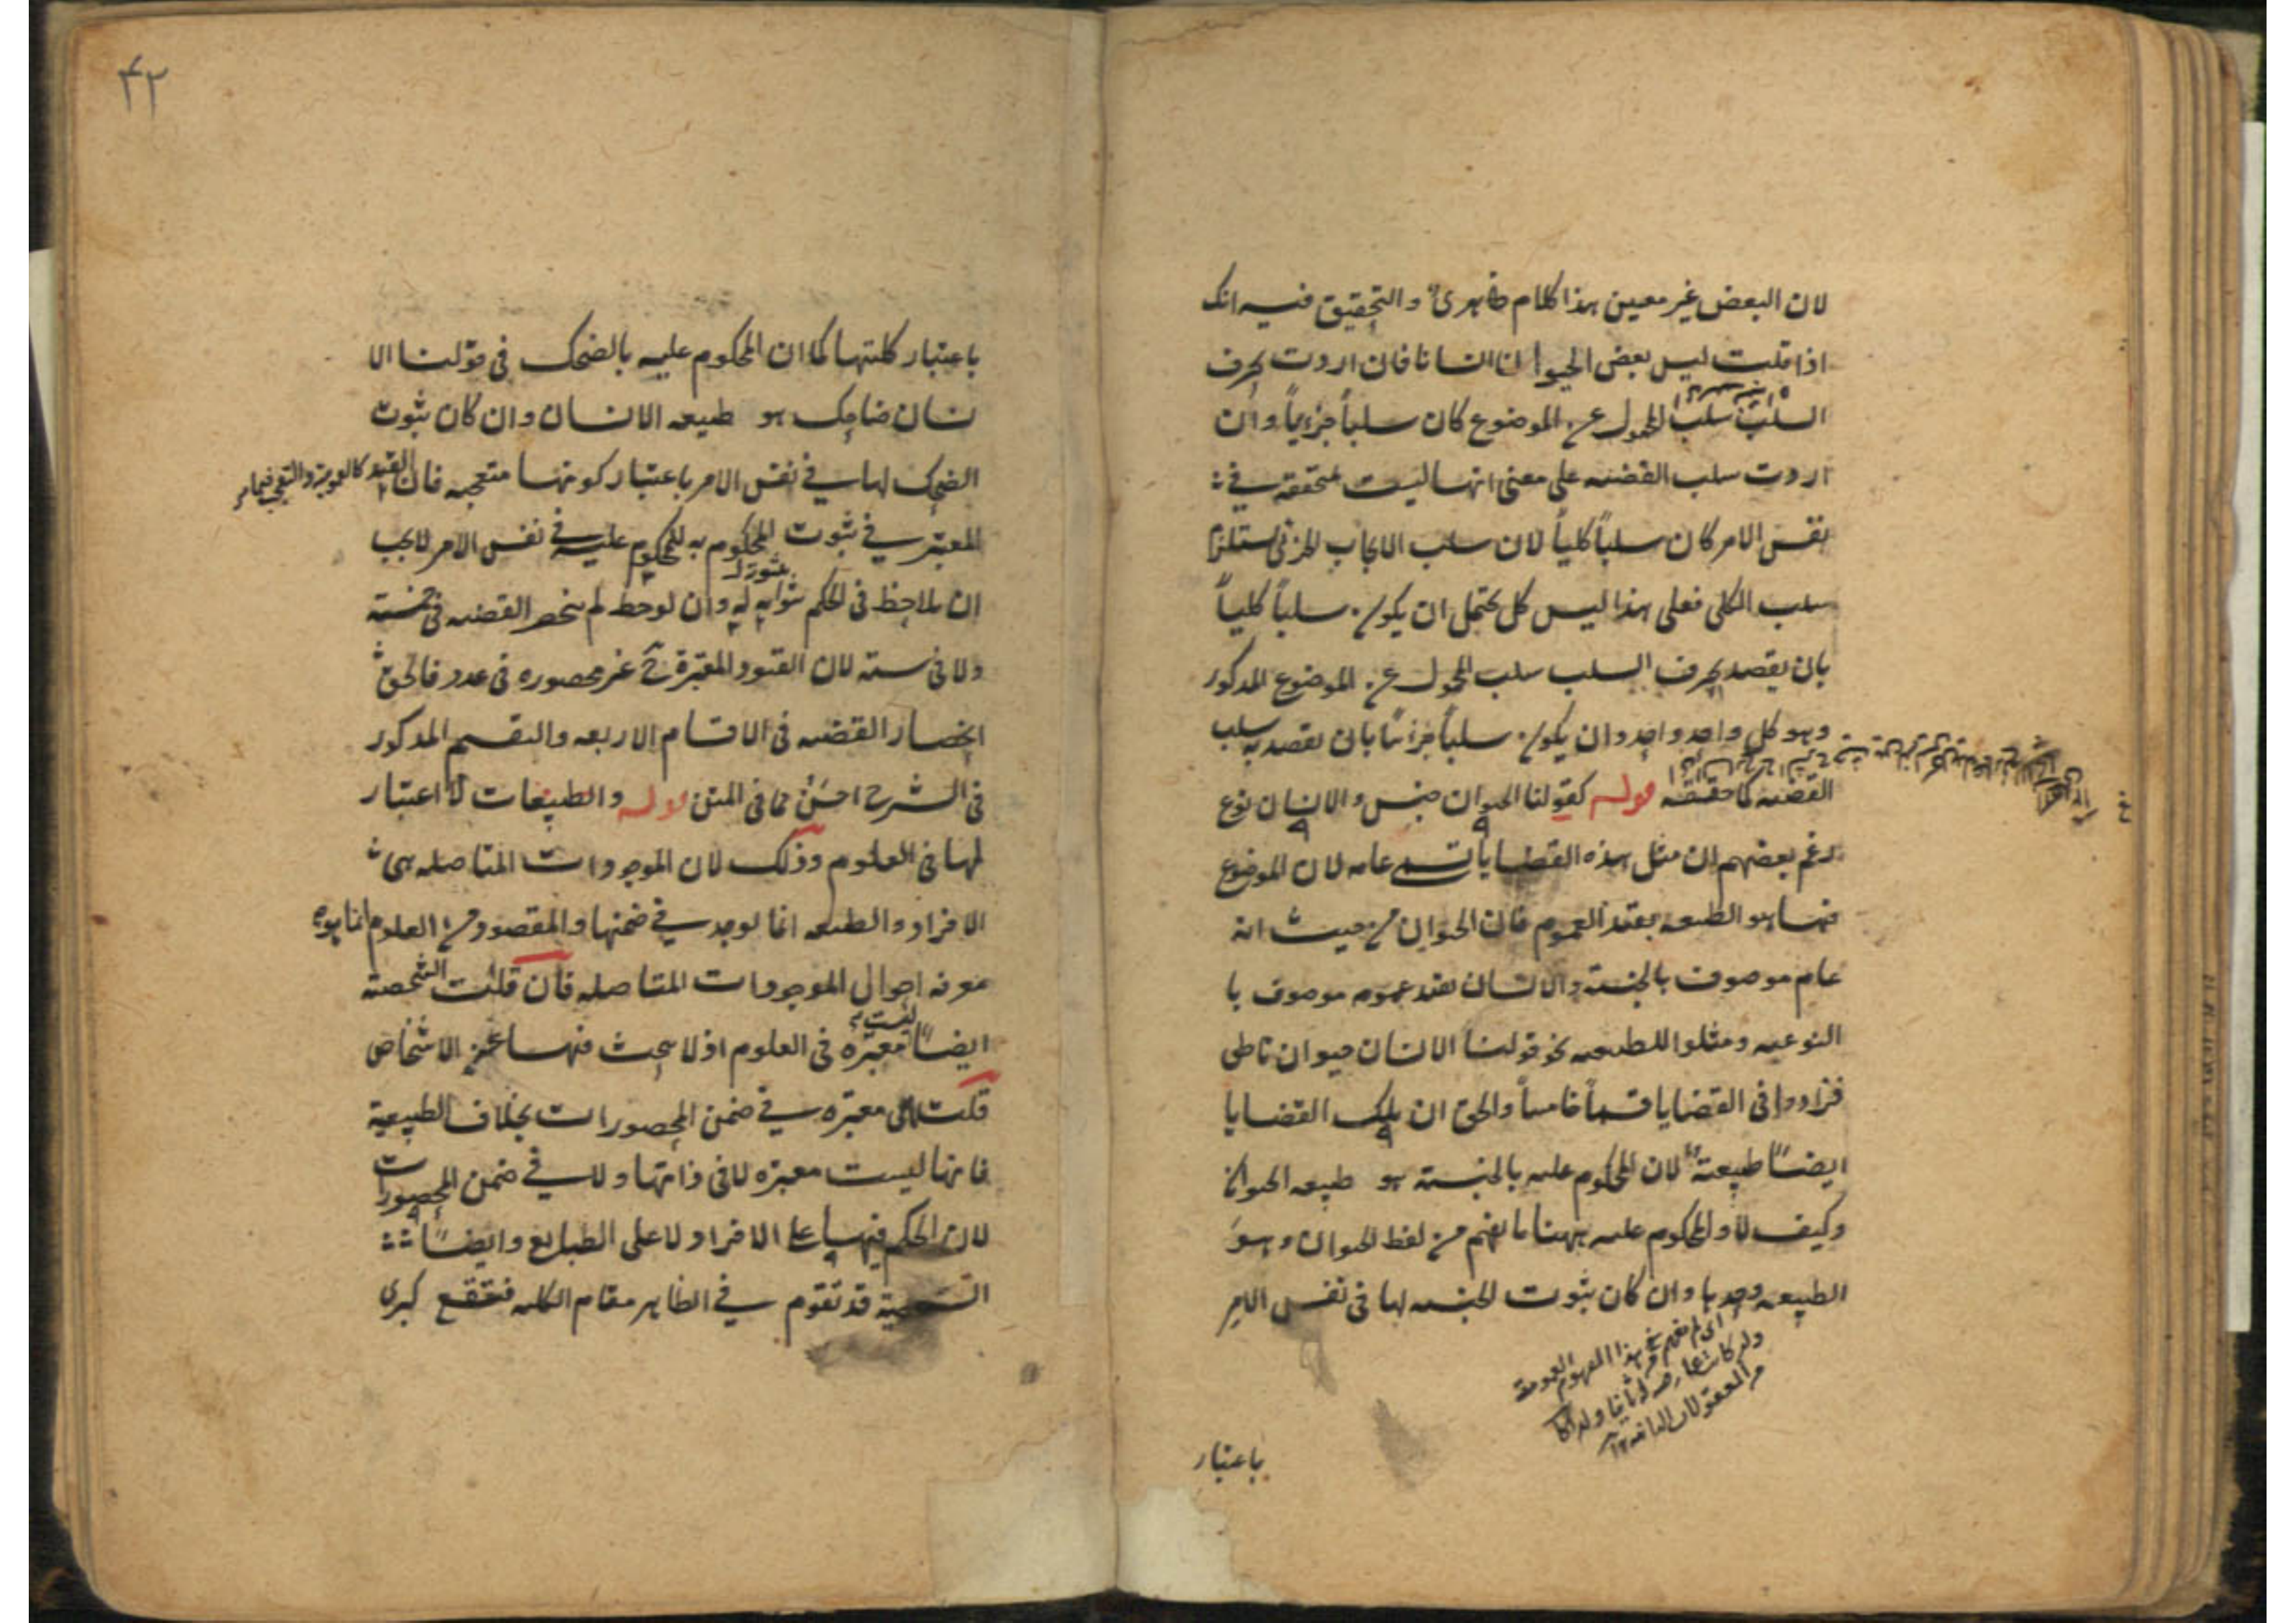 لان البعض غير معين هذا كلام ظاهرى والتحقيق فيه انك
اذا قلت ليس بعض الحيوان انسانا فان اردت بحرف
السلب سلب المحمول عن الموضوع كان سلباً جزئياً وان
اردت سلب القضيه على معنى انها ليست متحققه في
نفس الامر كان سلباً كلياً لان سلب الايجاب الجزئى يستلزم
سلب الكلى فعلى هذا ليس كل يحتمل ان يكون سلباً كلياً
بان يقصد بحرف السلب سلب المحمول عن الموضوع المذكور
وهو كل واحد واحد وان يكون سلباً جزئياً بان يقصد به سلب
القضيه كما حققه قوله كقولنا الحيوان جنس والانسان نوع
زعم بعضهم ان مثل هذه القضايا تسمى عامه لان الموضوع
فيها هو الطبيعه بقيد العموم فان الحيوان من حيث انه
عام موصوف بالجنسية والانسان بقيد عمومه موصوف با
النوعيه ومثلوا للطبيعيه نحو قولنا الانسان حيوان ناطق
فزادوا فى القضايا قسماً خامساً والحق ان تلك القضايا
ايضاً طبيعية لان المحكوم عليه بالجنسية هو طبيعه الحيوان
وكيف لا والمحكوم عليه ههنا ما يفهم من لفظ الحيوان وهو
الطبيعه وحدها وان كان ثبوت الجنسيه لها فى نفس الامر
باعتبار
۴۲
باعتبار كليتها كما ان المحكوم عليه بالضحك فى قولنا الا
نسان ضاحك هو طبيعه الانسان وان كان ثبوت
الضحك لها في نفس الامر باعتبار كونها متعجبه فان القيد
المعتبر في ثبوت المحكوم به للمحكوم عليه في نفس الامر لا يجب
ان يلاحظ فى الحكم بثبوته له وان لوحظ لم ينحصر القضيه فى خمسة
ولا فى سته لان القيود المعتبرة ح غير محصوره فى عدد فالحق
انحصار القضيه فى الاقسام الاربعه والتقسيم المذكور
فى الشرح احسن مما فى المتن قوله والطبيعات لا اعتبار
لها فى العلوم وذلك لان الموجودات المتاصله هى
الافراد والطبيعه انما توجد في ضمنها والمقصود من العلوم انما هو
معرفه احوال الموجودات المتاصله فان قلت الشخصية
ايضاً ليست معتبره فى العلوم اذ لا يبحث فيها عن الاشخاص
قلت هى معتبره في ضمن المحصورات بخلاف الطبيعية
فانها ليست معتبره لا فى ذاتها ولا في ضمن المحصورات
لان الحكم فيها على الافراد لا على الطبايع وايضاً
الشخصية قد تقوم في الظاهر مقام الكليه فتقع كبرى